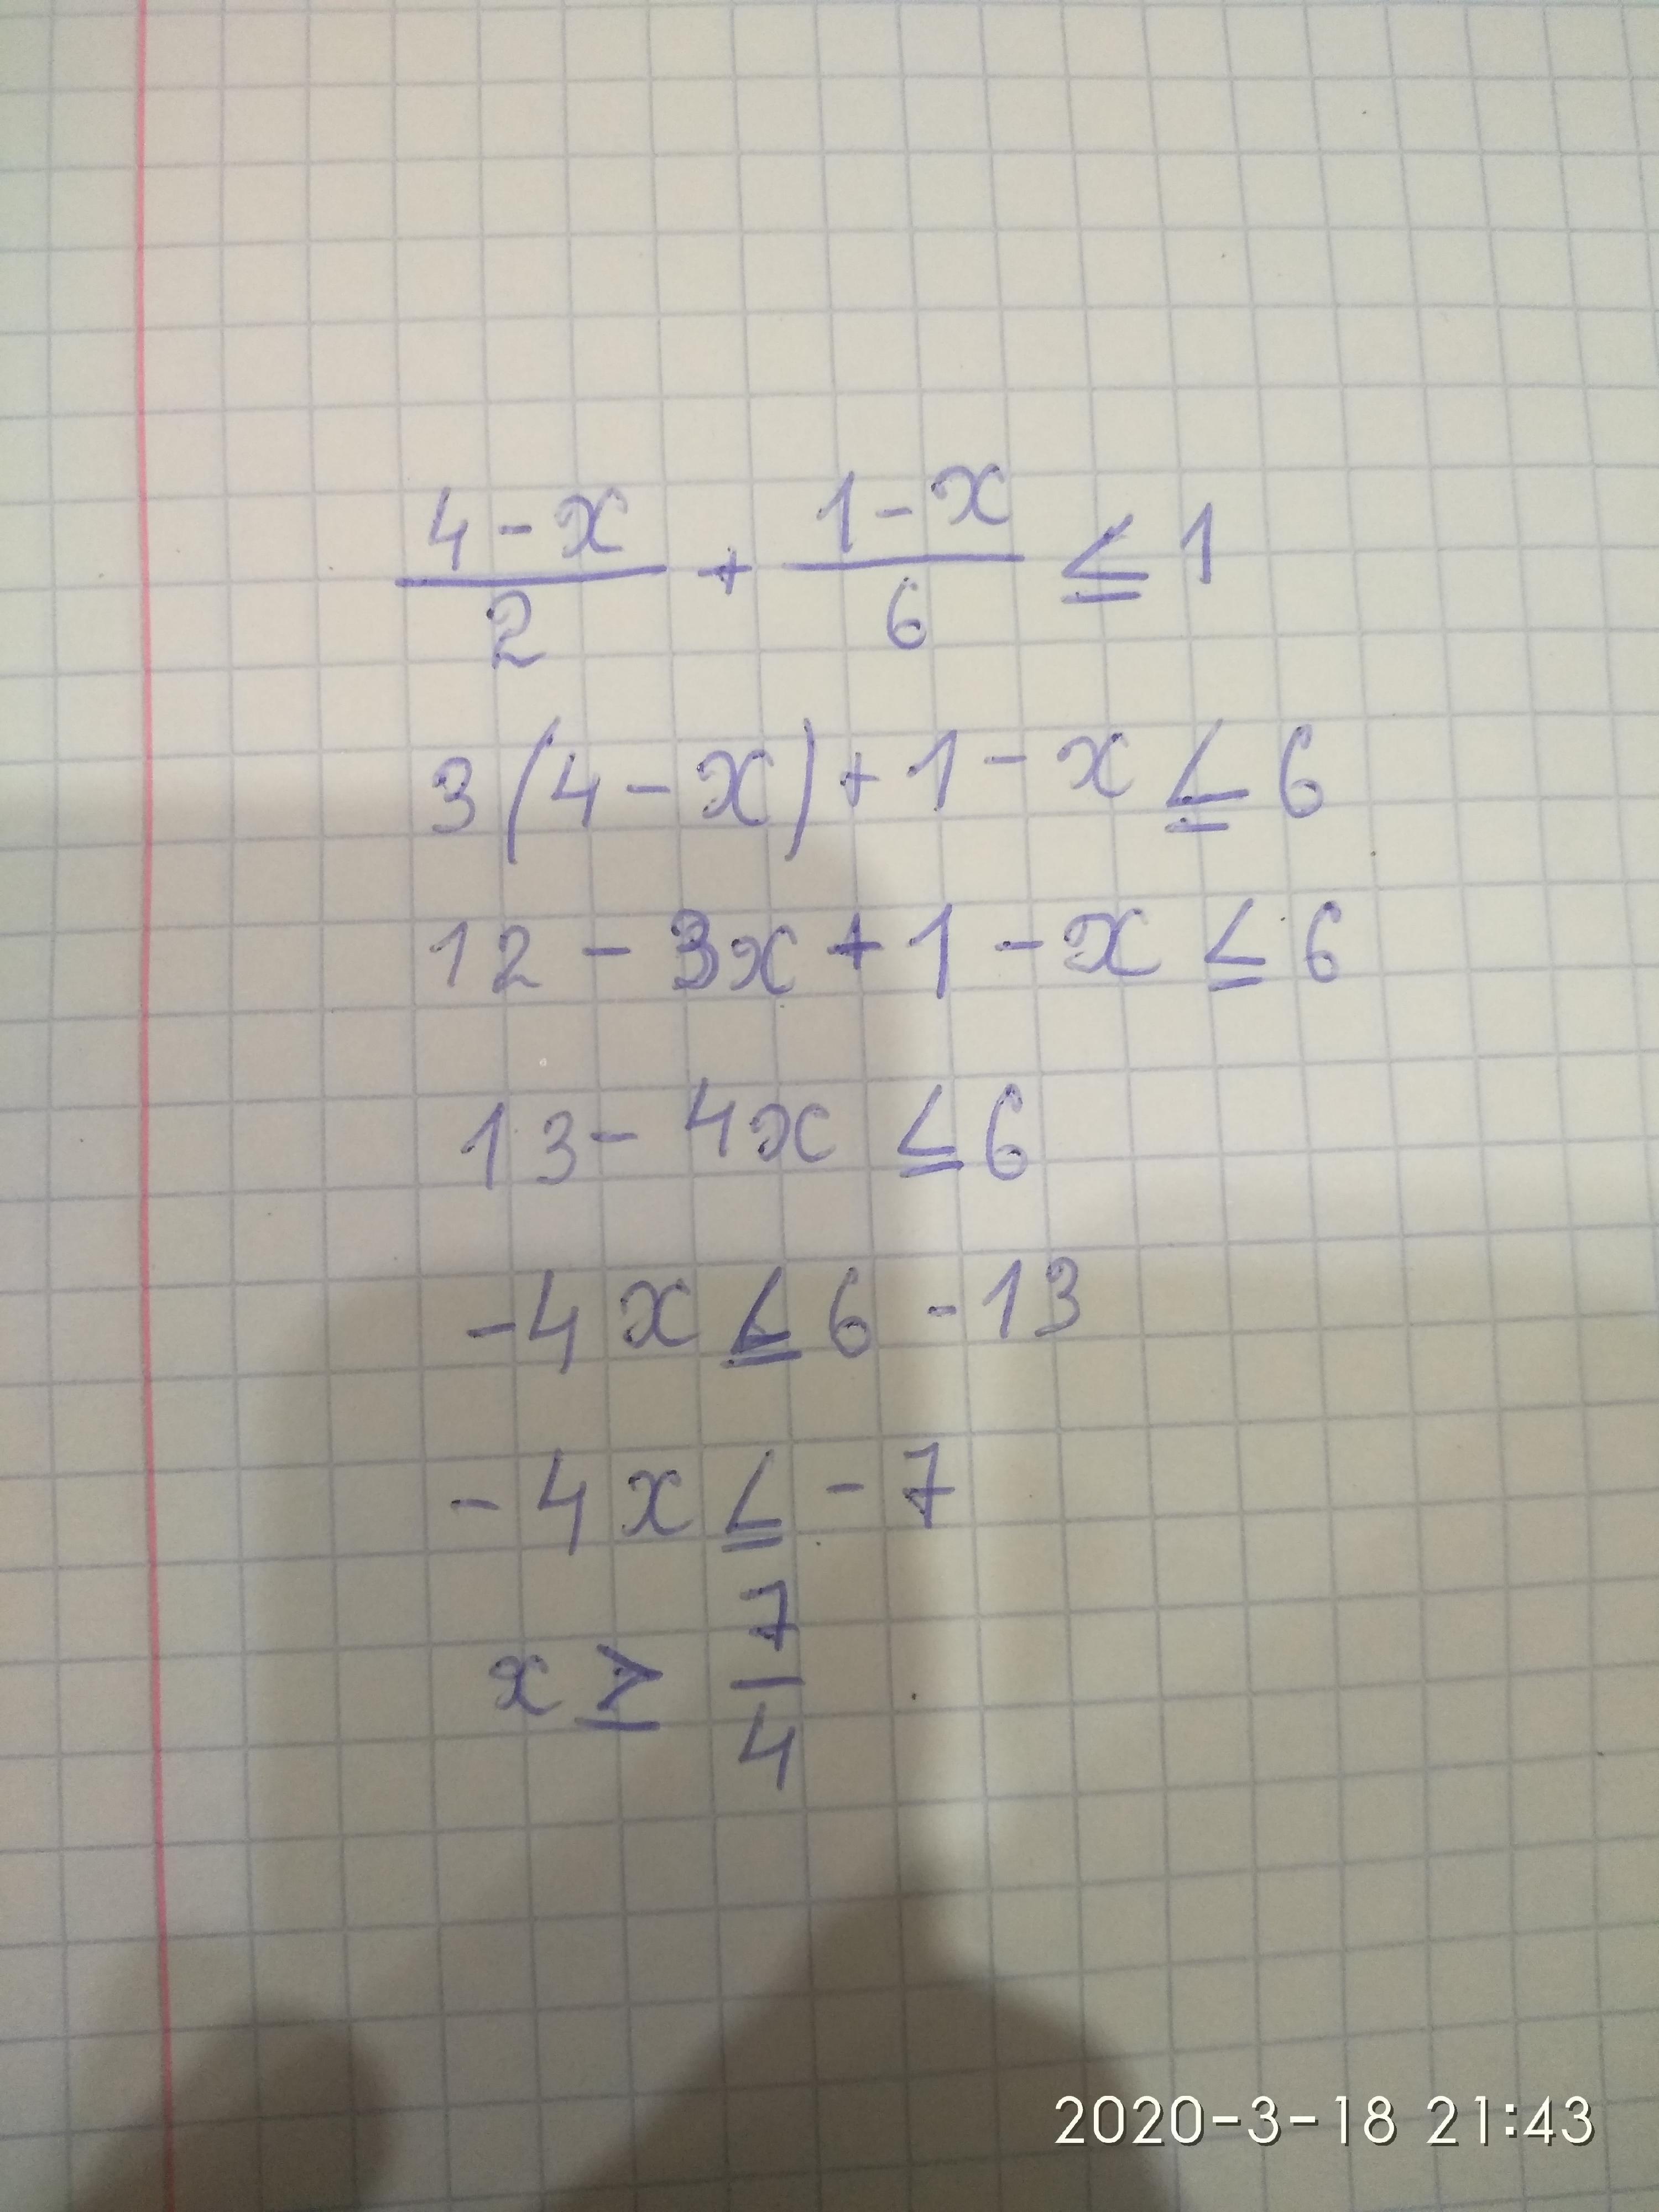 4-x/2 + 1-x/6 ≤ 1
3(4-x)+1-x ≤ 6
12-3x+1-x ≤ 6
13-4x ≤ 6
-4x ≤ 6-13
-4x ≤ -7
x ≥ 7/4
2020-3-18 21:43